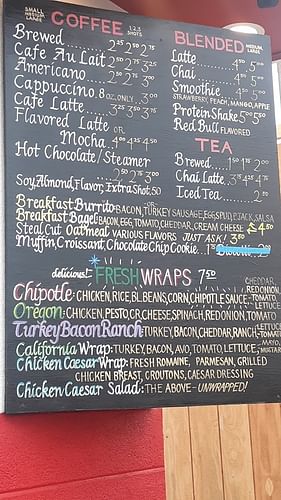 SMALL
MEDIUM
LARGE
COFFEE
1,2,3
SHOTS
Brewed......2²⁵ 2⁵⁰ 2⁷⁵
Cafe Au Lait 2⁵⁰
Americano
Cappuccino. 8 oz. ONLY. 3⁰⁰
Caffe Latte
Flavored Latte
OR
Mocha
Hot Chocolate/Steamer
2⁵⁰ 2⁷⁵ 3⁰⁰
Soy, Almond, Flavor, Extra Shot .50
BLENDED
MEDIUM
LARGE
Latte
Chai
Smoothie
STRAWBERRY, PEACH, MANGO, APPLE
Protein Shake
Red Bull FLAVORED
TEA
Brewed
Chai Latte
Iced Tea
Breakfast Burrito: BACON, TURKEY SAUSAGE, EGG, SPUD, P.JACK, SALSA
Breakfast Bagel: BACON, EGG, TOMATO, CHEDDAR, CREAM CHEESE
£4⁵⁰
Steel Cut Oatmeal VARIOUS FLAVORS JUST ASK! 3⁰⁰
Muffin, Croissant, Chocolate Chip Cookie...1⁷⁵
delicious! FRESH WRAPS 7⁵⁰
Chipotle: CHICKEN, RICE, BL BEANS, CORN, CHIPOTLE SAUCE, TOMATO, CHEDDAR, RED ONION, LETTUCE
Oregon: CHICKEN, PESTO, CR CHEESE, SPINACH, RED ONION, TOMATO
Turkey Bacon Ranch: TURKEY, BACON, CHEDDAR, RANCH, LETTUCE TOMATO
California Wrap: TURKEY, BACON, AVO, TOMATO, LETTUCE, MAYO, MUSTARD
Chicken Caesar Wrap: FRESH ROMAINE, PARMESAN, GRILLED
CHICKEN BREAST, CROUTONS, CAESAR DRESSING
Chicken Caesar Salad: THE ABOVE - UNWRAPPED!